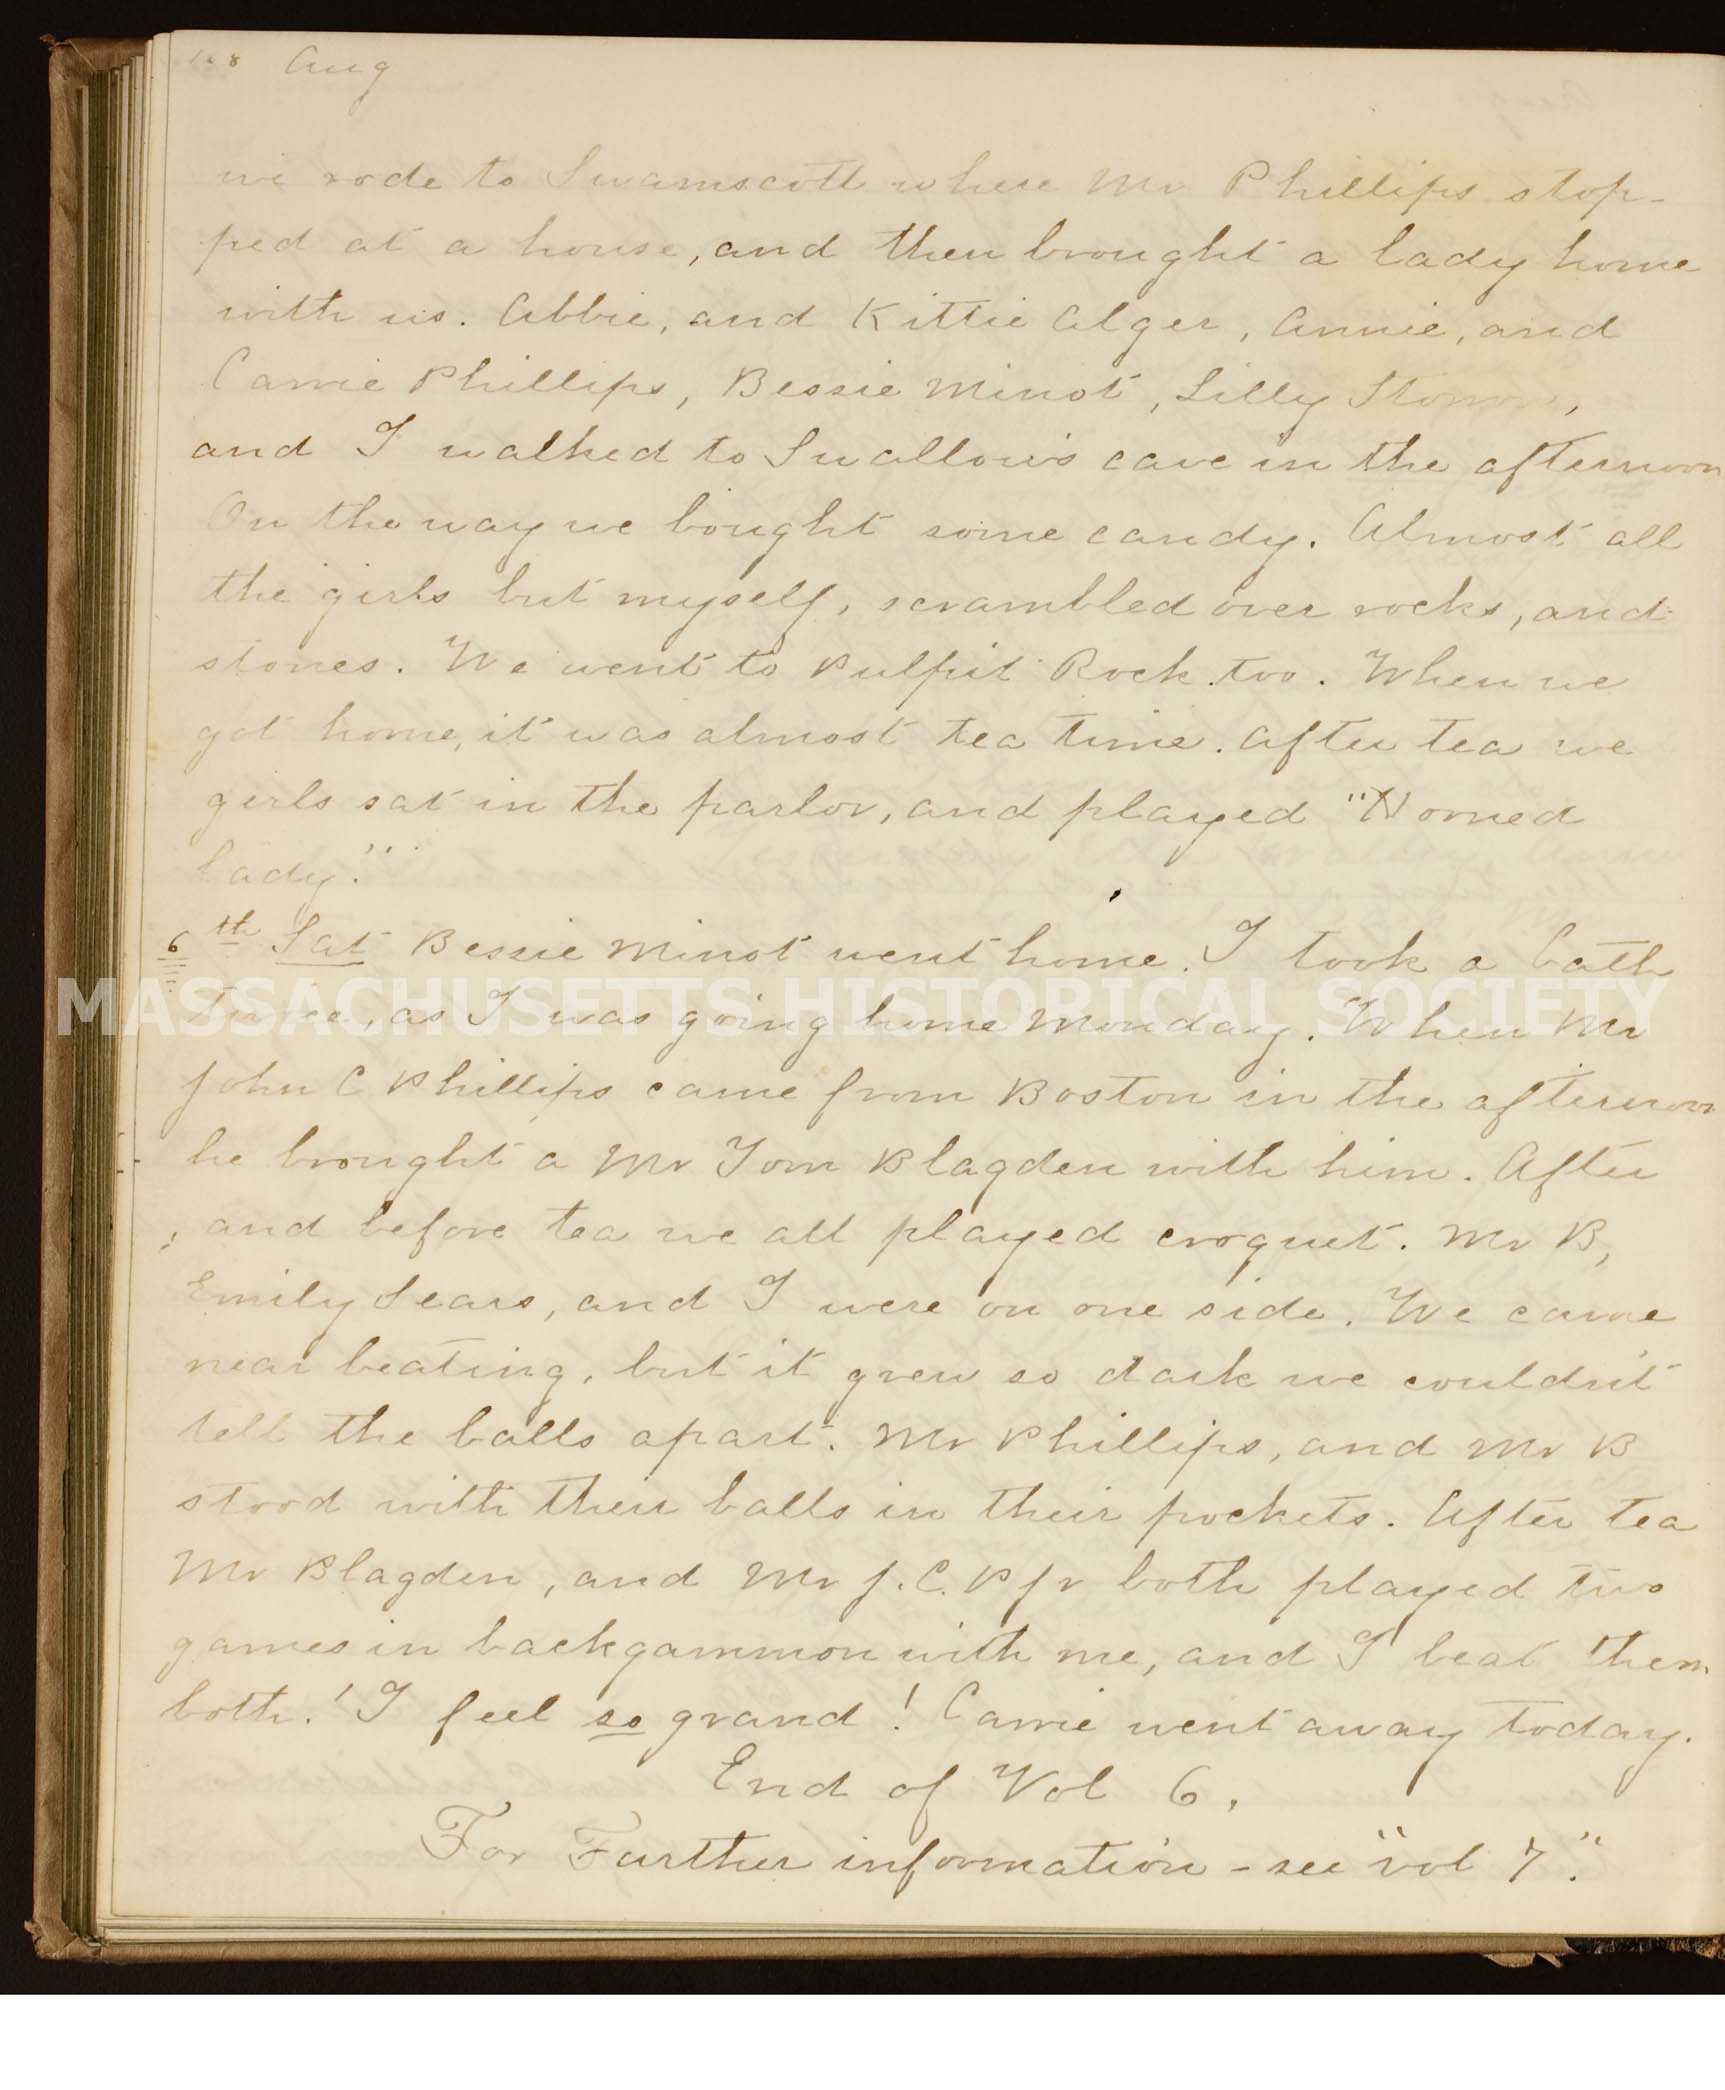 Aug
we rode to Swamscott where Mr Phillips stop-
ped at a house, and then brought a lady home
with us. Abbie, and Kittie Alger, Annie, and
Carrie Phillips, Bessie Minot, Lilly
and I walked to Swallow's cave in the afternoon
On the way we bought some candy. Almost all
the girls but myself, scrambled over rocks, and
stones. We went to Pulpit Rock too. When we
got home, it was almost tea time. After tea we
girls sat in the parlor, and played "Horned
lady."
6th Sat Bessie Minot went home. I took a bath
MASSACHUSETTS HISTORICAL SOCIETY
twice, as I was going home Monday. When Mr
John C Phillips came from Boston in the afternoon
he brought a Mr Tom Blagden with him. After
, and before tea we all played croquet. Mr B,
Emily Sears, and I were on one side. We came
near beating, but it grew so dark we couldn't
tell the balls apart. Mr Phillips, and Mr B
stood with their balls in their pockets. After tea
Mr Blagden, and Mr J. C. P Jr both played two
games in backgammon with me, and I beat them
both! I feel so grand! Carrie went away today.
End of Vol 6.
For Further information - see "vol 7".